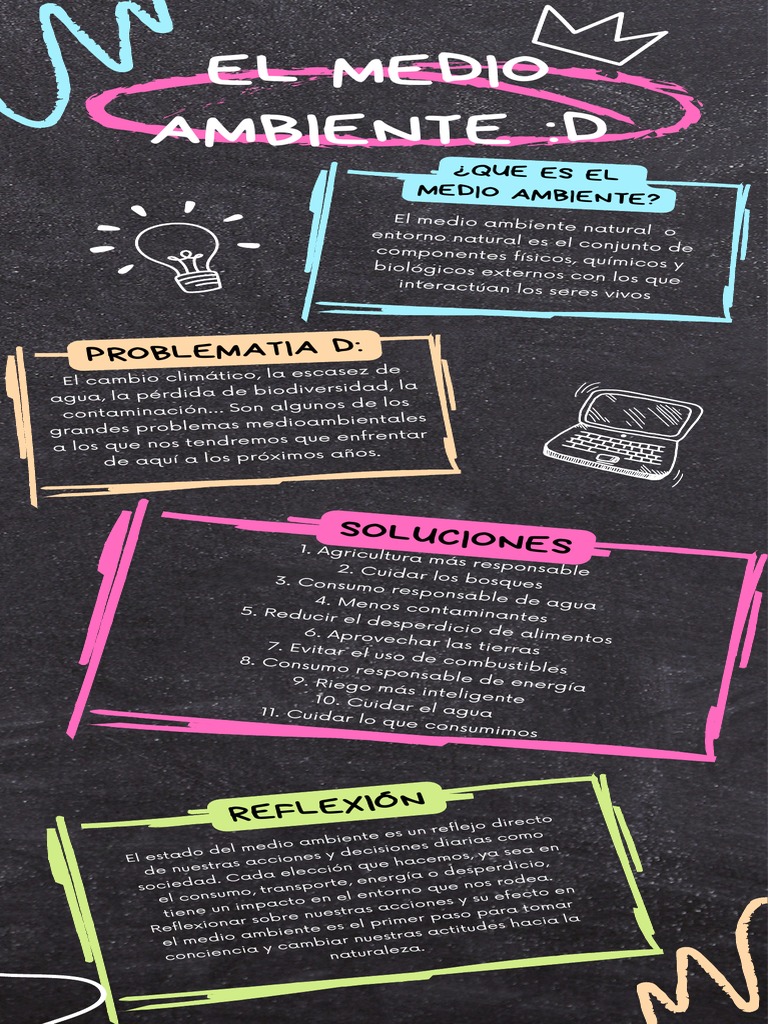 EL MEDIO
AMBIENTE :D
¿QUE ES EL
MEDIO AMBIENTE?
El medio ambiente natural o
entorno natural es el conjunto de
componentes físicos, químicos y
biológicos externos con los que
interactúan los seres vivos
PROBLEMATIA D:
El cambio climático, la escasez de
agua, la pérdida de biodiversidad, la
contaminación... Son algunos de los
grandes problemas medioambientales
a los que nos tendremos que enfrentar
de aquí a los próximos años.
SOLUCIONES
1. Agricultura más responsable
2. Cuidar los bosques
3. Consumo responsable de agua
4. Menos contaminantes
5. Reducir el desperdicio de alimentos
6. Aprovechar las tierras
7. Evitar el uso de combustibles
8. Consumo responsable de energía
9. Riego más inteligente
10. Cuidar el agua
11. Cuidar lo que consumimos
REFLEXIÓN
El estado del medio ambiente es un reflejo directo
de nuestras acciones y decisiones diarias como
sociedad. Cada elección que hacemos, ya sea en
el consumo, transporte, energía o desperdicio,
tiene un impacto en el entorno que nos rodea.
Reflexionar sobre nuestras acciones y su efecto en
el medio ambiente es el primer paso para tomar
conciencia y cambiar nuestras actitudes hacia la
naturaleza.